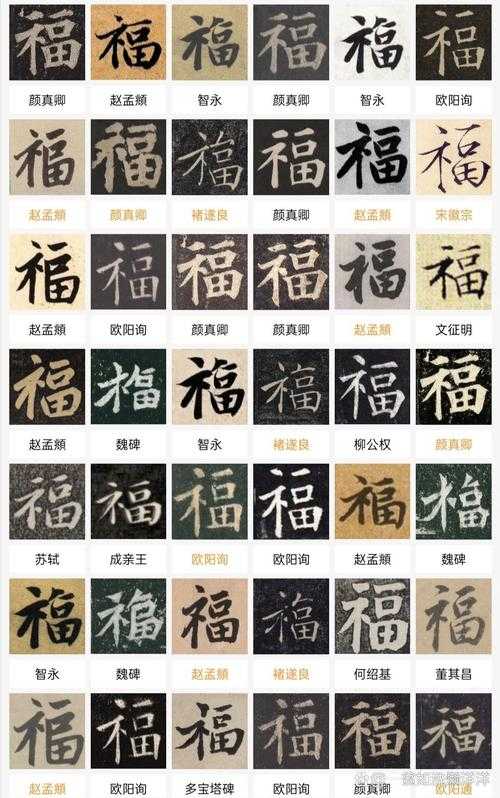 福 福 福 福 福 福
颜真卿 赵孟頫 智永 颜真卿 智永 欧阳询
福 福 福 福 福 福
赵孟頫 颜真卿 褚遂良 颜真卿 赵孟頫 宋徽宗
福 福 福 福 福 福
赵孟頫 欧阳询 颜真卿 颜真卿 赵孟頫 文征明
福 福 福 福 福 福
赵孟頫 魏碑 智永 褚遂良 柳公权 颜真卿
福 福 福 福 福 福
苏轼 成亲王 欧阳询 欧阳询 赵孟頫 魏碑
福 福 福 福 福 福
智永 魏碑 赵孟頫 褚遂良 何绍基 董其昌
福 福 福 福 福 福
赵孟頫 欧阳询 多宝塔碑 欧阳询 颜真卿 欧阳通